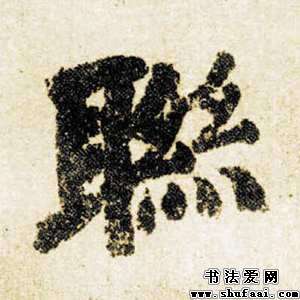 聯
书法爱网
www.shufaai.com